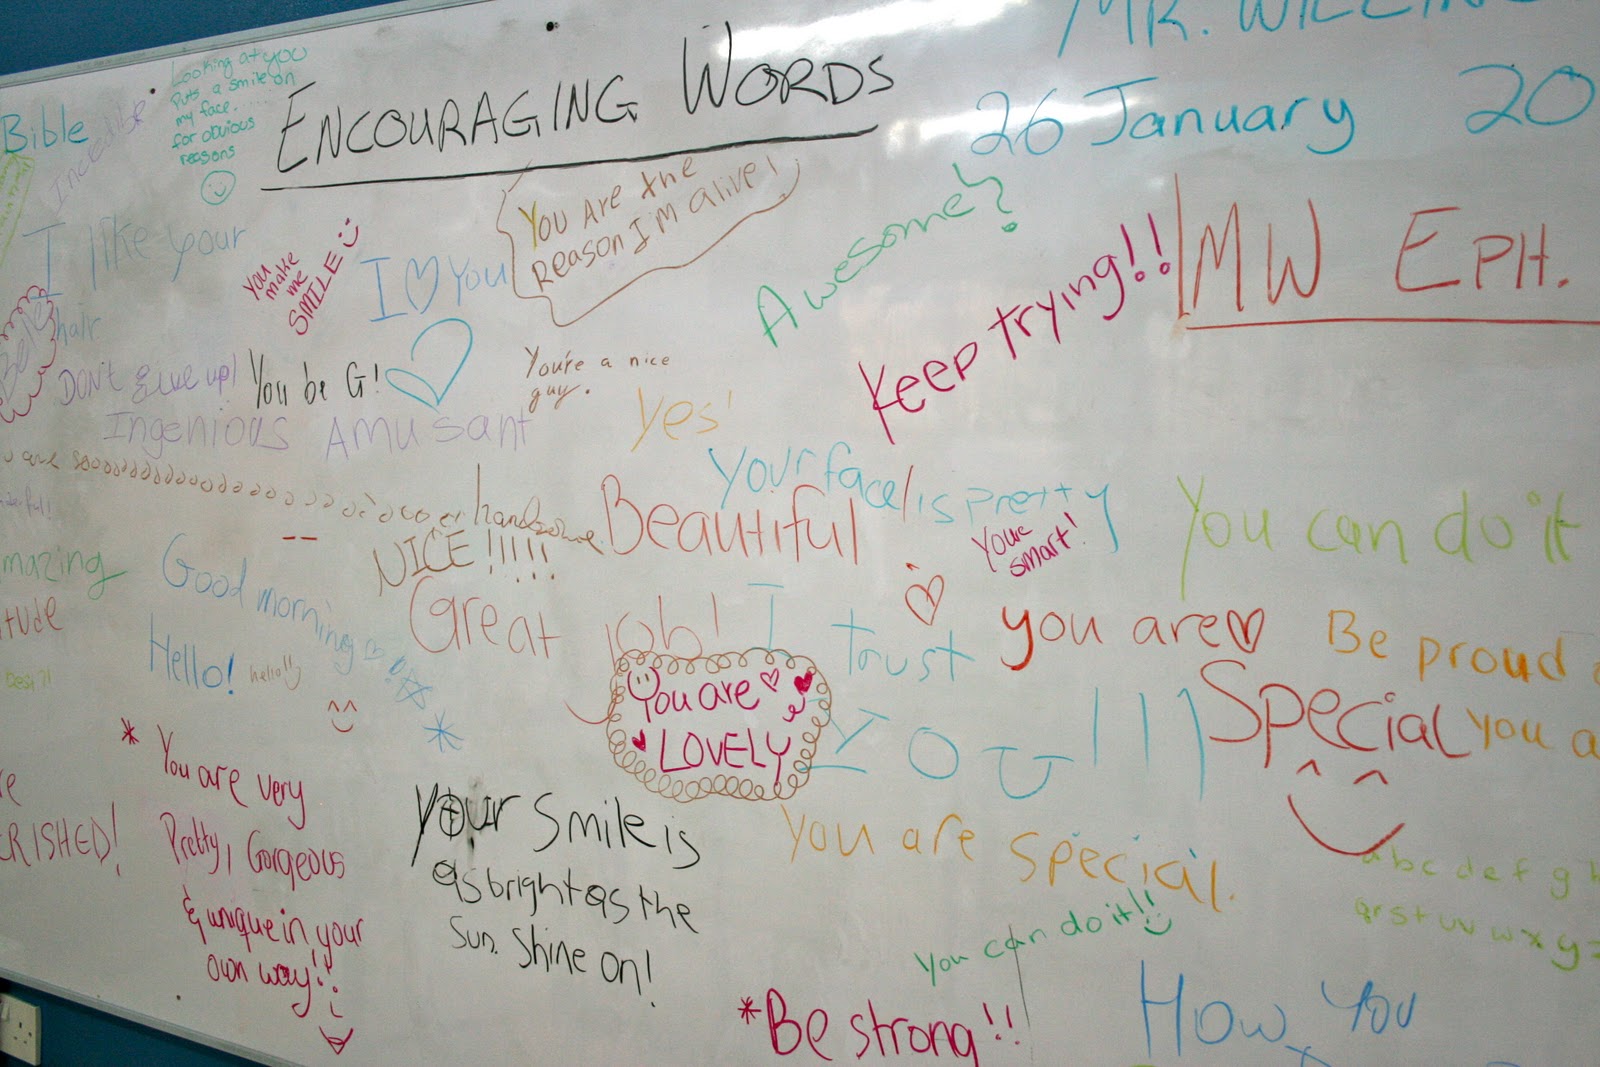 MR.
26 January 20
ENCOURAGING WORDS
MW EPH.
Bible
Incredible
Looking at you
puts a smile on
my face.....
for obvious
reasons
I like your
hair
You
make
me
SMILE
I YOU
You Are the
Reason I'm alive!
Awesome!
Keep trying!!
DON'T give up!
You be G!
You're a nice
guy.
Ingenious
AMusant
Yes!
Your face is pretty
handsome
NICE!!!!!
Beautiful
You're
smart!
You can do it
mazing
tude
Good morning
Hello!
hello!!
Great job!
I trust
YOU!!!
you are
Special
Be proud
you a
You are
LOVELY
* You are very
Pretty, Gorgeous
& unique in your
own way!!
RISHED!
Your smile is
as bright as the
sun. Shine on!
You are special.
You can do it!!
a b c d e f g h
q r s t u v w x y z
*Be strong!!
How You